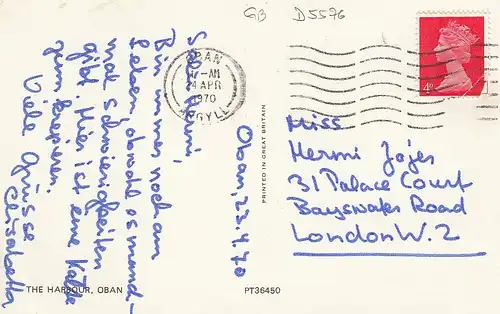 GB D5576
OBAN
11-AM
24 APR
1970
ARGYLL
4D
Oban, 23.4.70
Bin immer noch am
Leben, obwohl es manch-
mal Schwierigkeiten
gibt. Hier ist eine Kälte
zum Erfrieren.
Viele Grüsse
Elisabeth
PRINTED IN GREAT BRITAIN
Miss
Hermi
31 Palace Court
Bayswater Road
London W. 2
THE HARBOUR, OBAN
PT36450